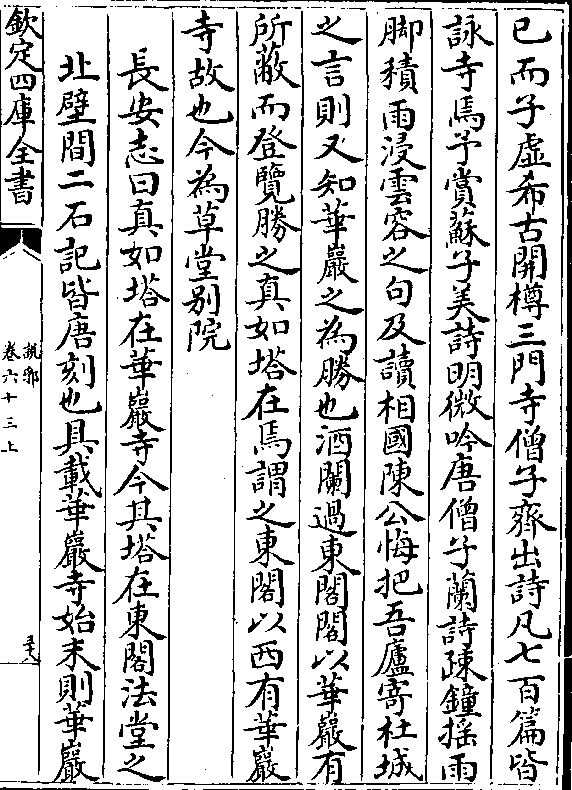 已而子虛希古開樽三門寺僧子齊出詩凡七百篇皆
詠寺焉予賞蘇子美詩明微吟唐僧子蘭詩疎鐘搖雨
脚積雨浸雲容之句及讀相國陳公悔把吾廬寄杜城
之言則又知華巖之為勝也酒闌過東閣閣以華巖有
所蔽而登覽勝之真如塔在焉謂之東閣以西有華巖
寺故也今為草堂别院
長安志曰真如塔在華巖寺今其塔在東閣法堂之
北壁間二石記皆唐刻也具載華巖寺始末則華巖
欽定四庫全書
說郛
卷六十三上